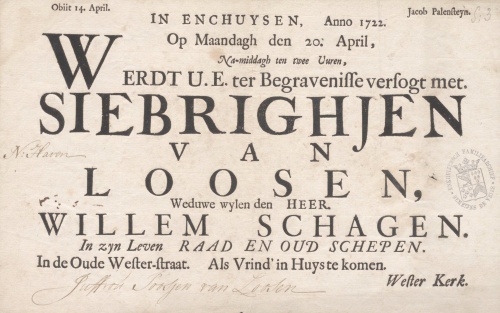 Obiit 14. April.
Jacob Palensteyn.
IN ENCHUYSEN, Anno 1722.
Op Maandagh den 20. April,
Na-middagh ten twee Uuren,
WERDT U.E. ter Begravenisse versogt met.
SIEBRIGHJEN
VAN
LOOSEN,
Weduwe wylen den HEER.
WILLEM SCHAGEN.
In zyn Leven RAAD EN OUD SCHEPEN.
In de Oude Wester-straat. Als Vrind' in Huys te komen.
Wester Kerk.
van Loosen